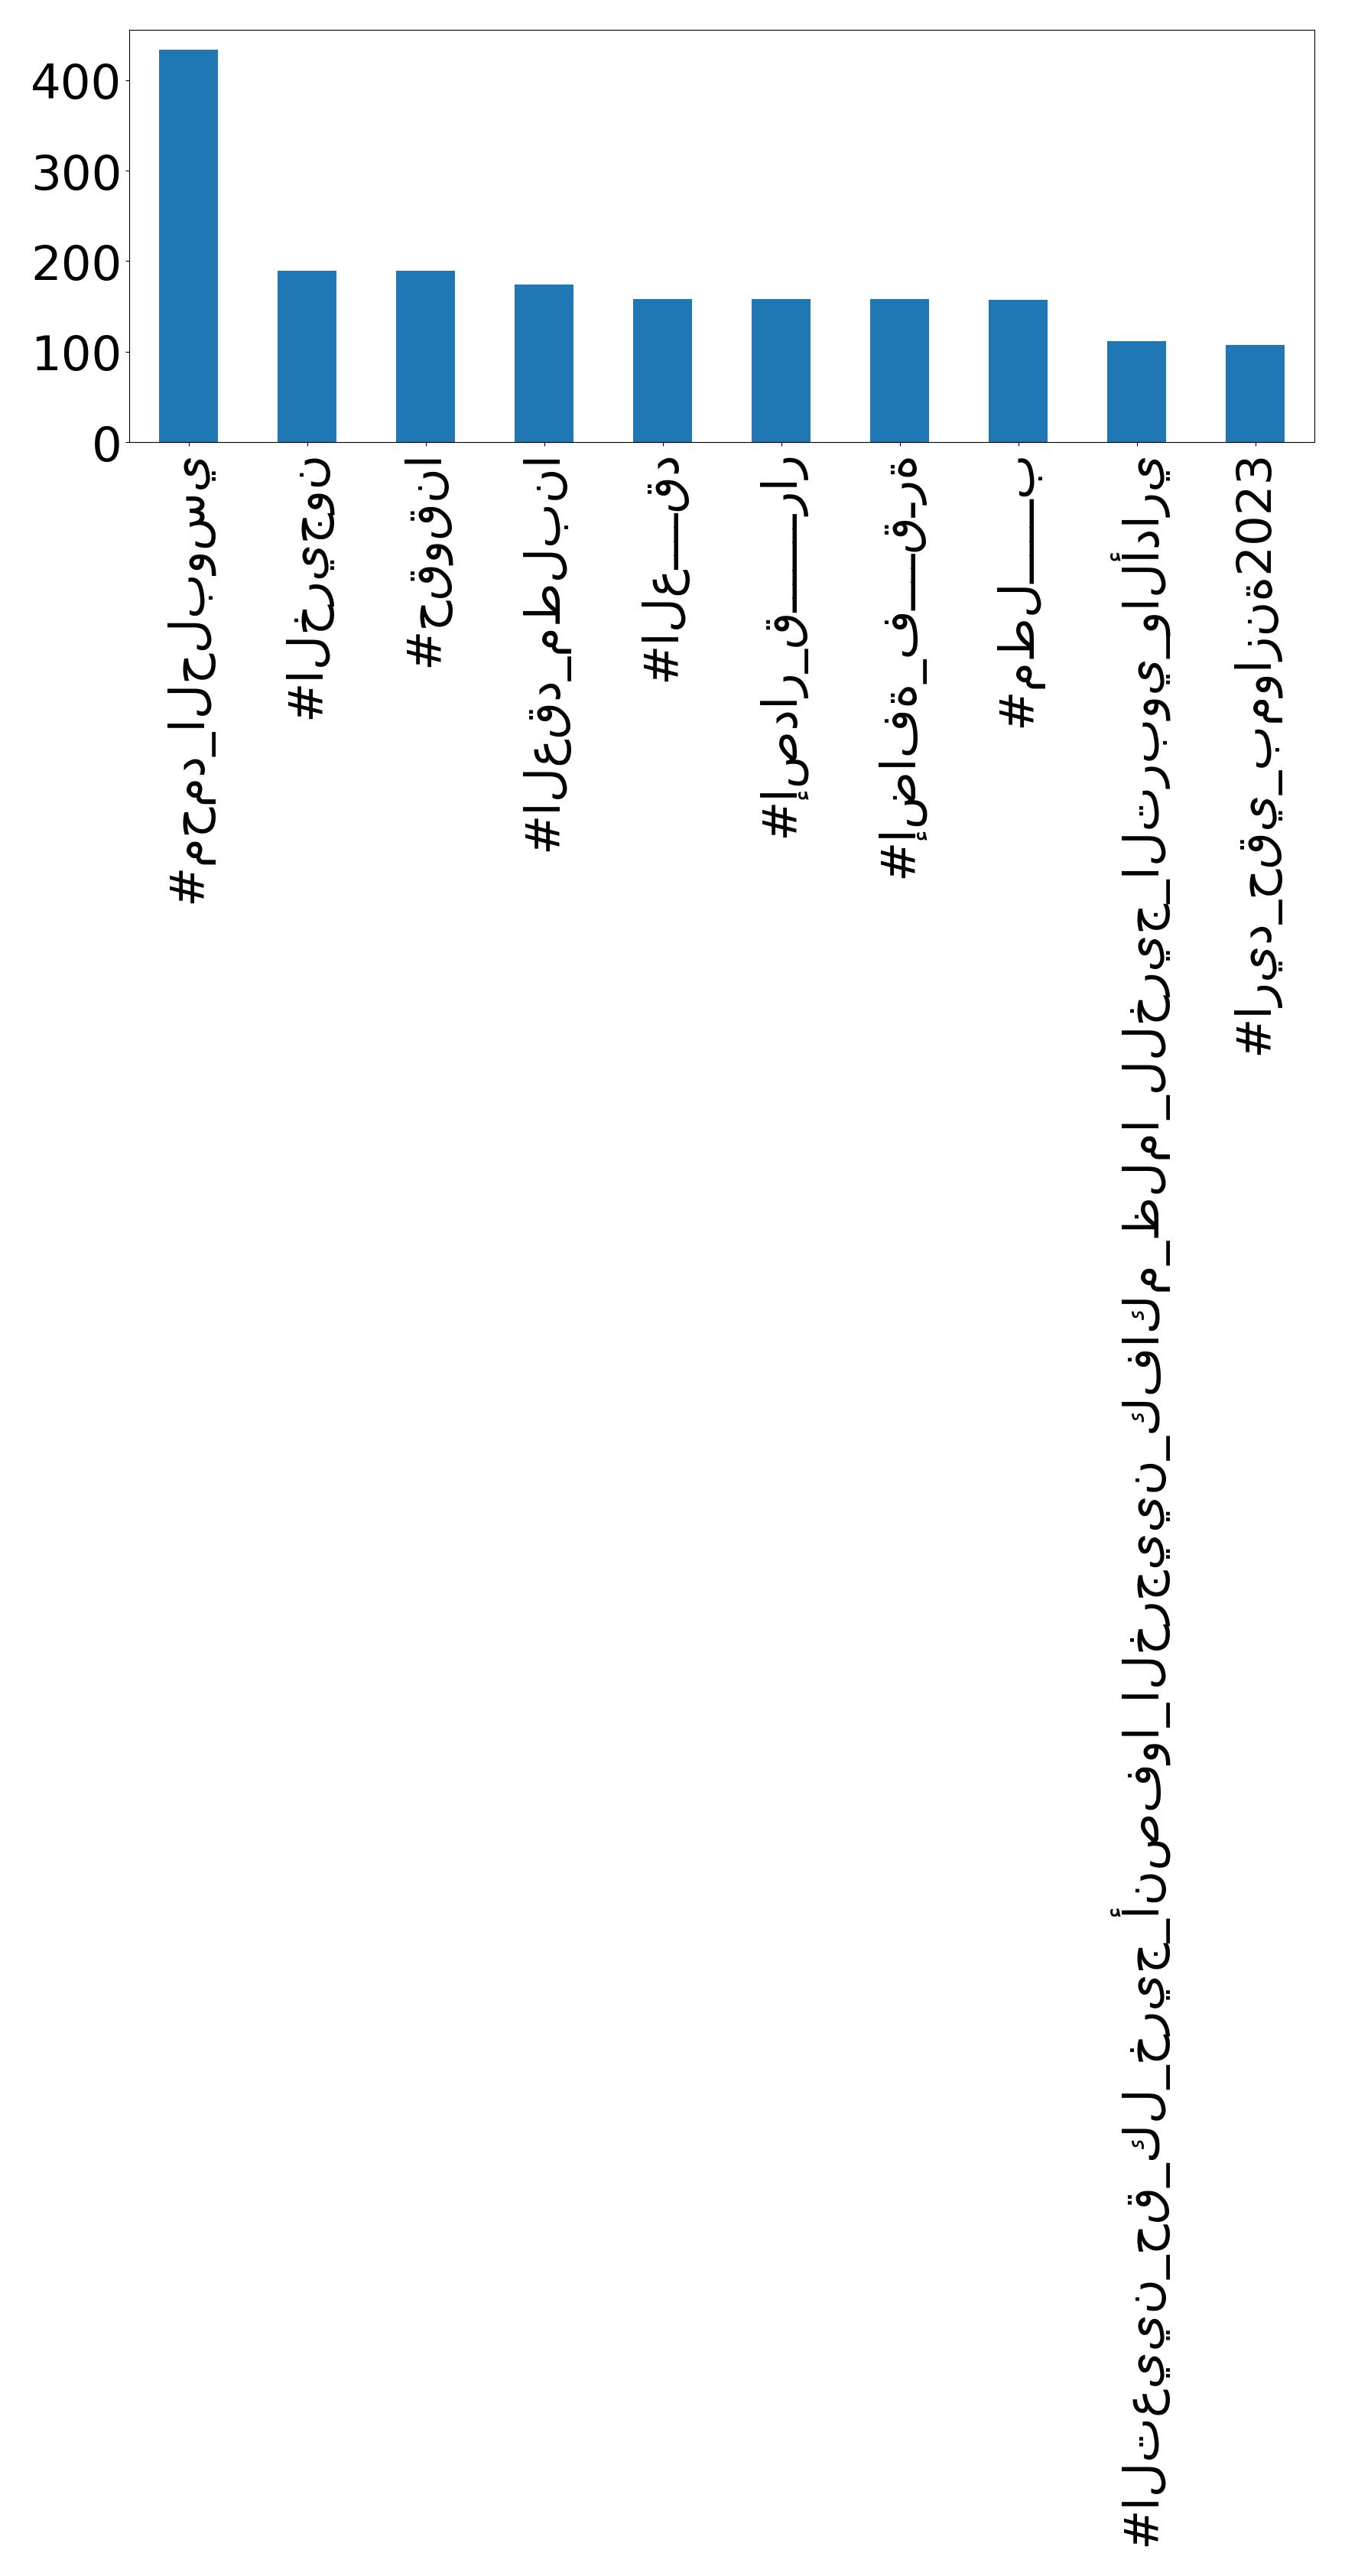 400
300
200
100
0
#محمد_الحلبوسي
#الخريجون
#حقوقنا
#العقد_مطلبنا
#العـــقد
#إصدار_قـــــرار
#إضافة_فـــقـرة
#مطلـــــب
#التعيين_حق_كل_خريج_أنصفوا_الخرجيين_كفاكم_ظلما_للخريج_التربوي_والأداري
#اريد_حقي_بموازنة2023